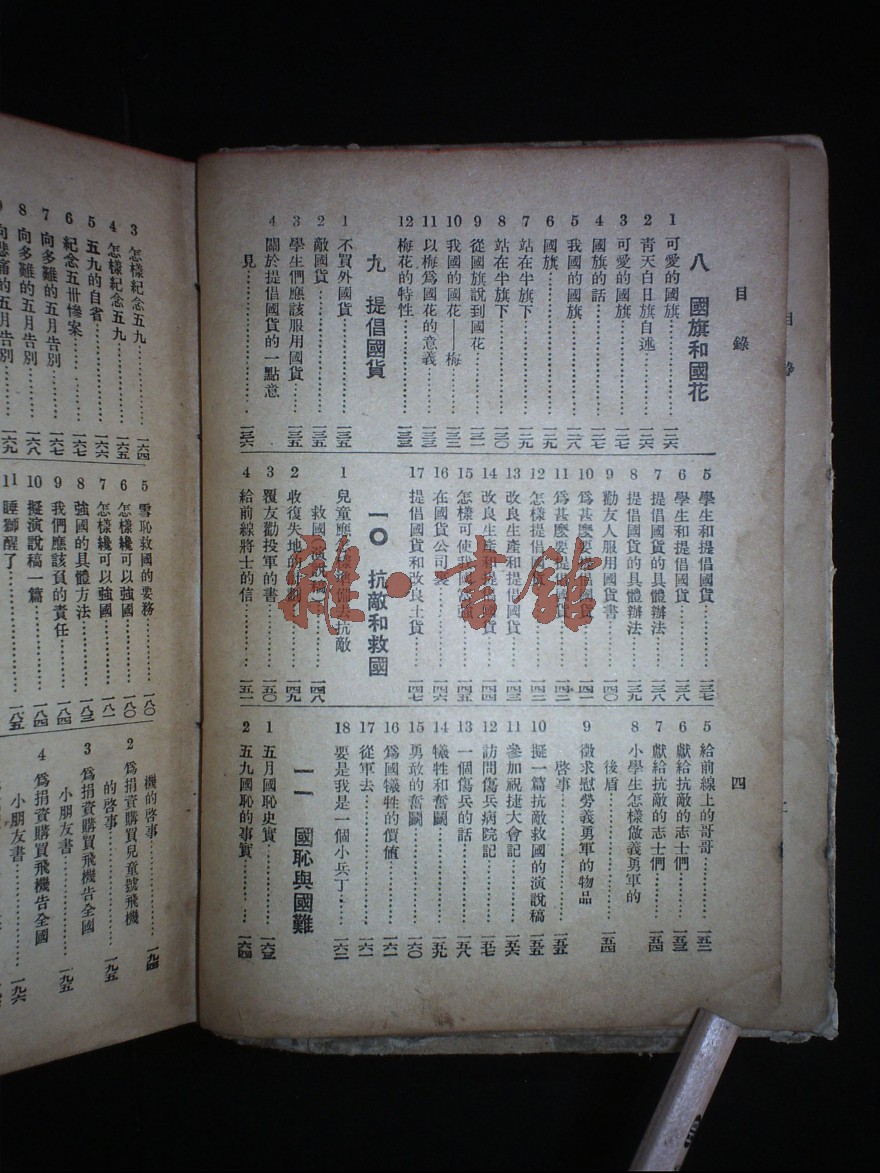 目錄
四
八 國旗和國花
1 可愛的國旗……一二六
2 青天白日旗自述……一二六
3 可愛的國旗……一二七
4 國旗的話……一二七
5 我國的國旗……一二八
6 國旗……一二九
7 站在半旗下……一二九
8 站在半旗下……一三〇
9 從國旗說到國花……一三一
10 我國的國花——梅……一三二
11 以梅爲國花的意義……一三二
12 梅花的特性……一三三
九 提倡國貨
1 不買外國貨……一三五
2 敵國貨……一三五
3 學生們應該服用國貨……一三五
4 關於提倡國貨的一點意
見……一三六
5 學生和提倡國貨……一三七
6 學生和提倡國貨……一三八
7 提倡國貨的具體辦法……一三八
8 提倡國貨的具體辦法……一三九
9 勸友人服用國貨書……一四〇
10 爲甚麼要提倡國貨……一四一
11 爲甚麼要提倡國貨……一四二
12 怎樣提倡國貨……一四三
13 改良生產和提倡國貨……一四三
14 改良生產和提倡國貨……一四四
15 怎樣可使我國富強……一四五
16 在國貨公司裏……一四六
17 提倡國貨和改良土貨……一四七
一〇 抗敵和救國
1 兒童應怎樣準備去抗敵
救國(演說稿)……一四八
2 收復失地的計劃……一四九
3 覆友勸投軍的書……一五〇
4 給前線將士的信……一五一
5 給前線上的哥哥……一五二
6 獻給抗敵的志士們……一五三
7 獻給抗敵的志士們……一五四
8 小學生怎樣做義勇軍的
後盾……一五四
9 徵求慰勞義勇軍的物品
啓事……一五五
10 擬一篇抗敵救國的演說稿……一五五
11 參加祝捷大會記……一五六
12 訪問傷兵病院記……一五七
13 一個傷兵的話……一五八
14 犧牲和奮鬭……一五九
15 勇敢的奮鬭……一六〇
16 爲國犧牲的價值……一六一
17 從軍去……一六一
18 要是我是一個小兵丁……一六二
一一 國恥與國難
1 五月國恥史實……一六三
2 五九國恥的事實……一六四
3 怎樣紀念五九……一六四
4 怎樣紀念五九……一六五
5 五九的自省……一六六
6 紀念五卅慘案……一六七
7 向多難的五月告別……一六七
8 向多難的五月告別……一六八
向悲痛的五月告別……一六九
5 雪恥救國的要務……一八〇
6 怎樣纔可以強國……一八〇
7 怎樣纔可以強國……一八一
8 強國的具體方法……一八三
9 我們應該負的責任……一八四
10 擬演說稿一篇……一八四
11 睡獅醒了……一八五
機的啓事……一九四
2 爲捐資購買兒童號飛機
的啓事……一九五
3 爲捐資購買飛機告全國
小朋友書……一九五
4 爲捐資購買飛機告全國
小朋友書……一九六
雜·書館
HB